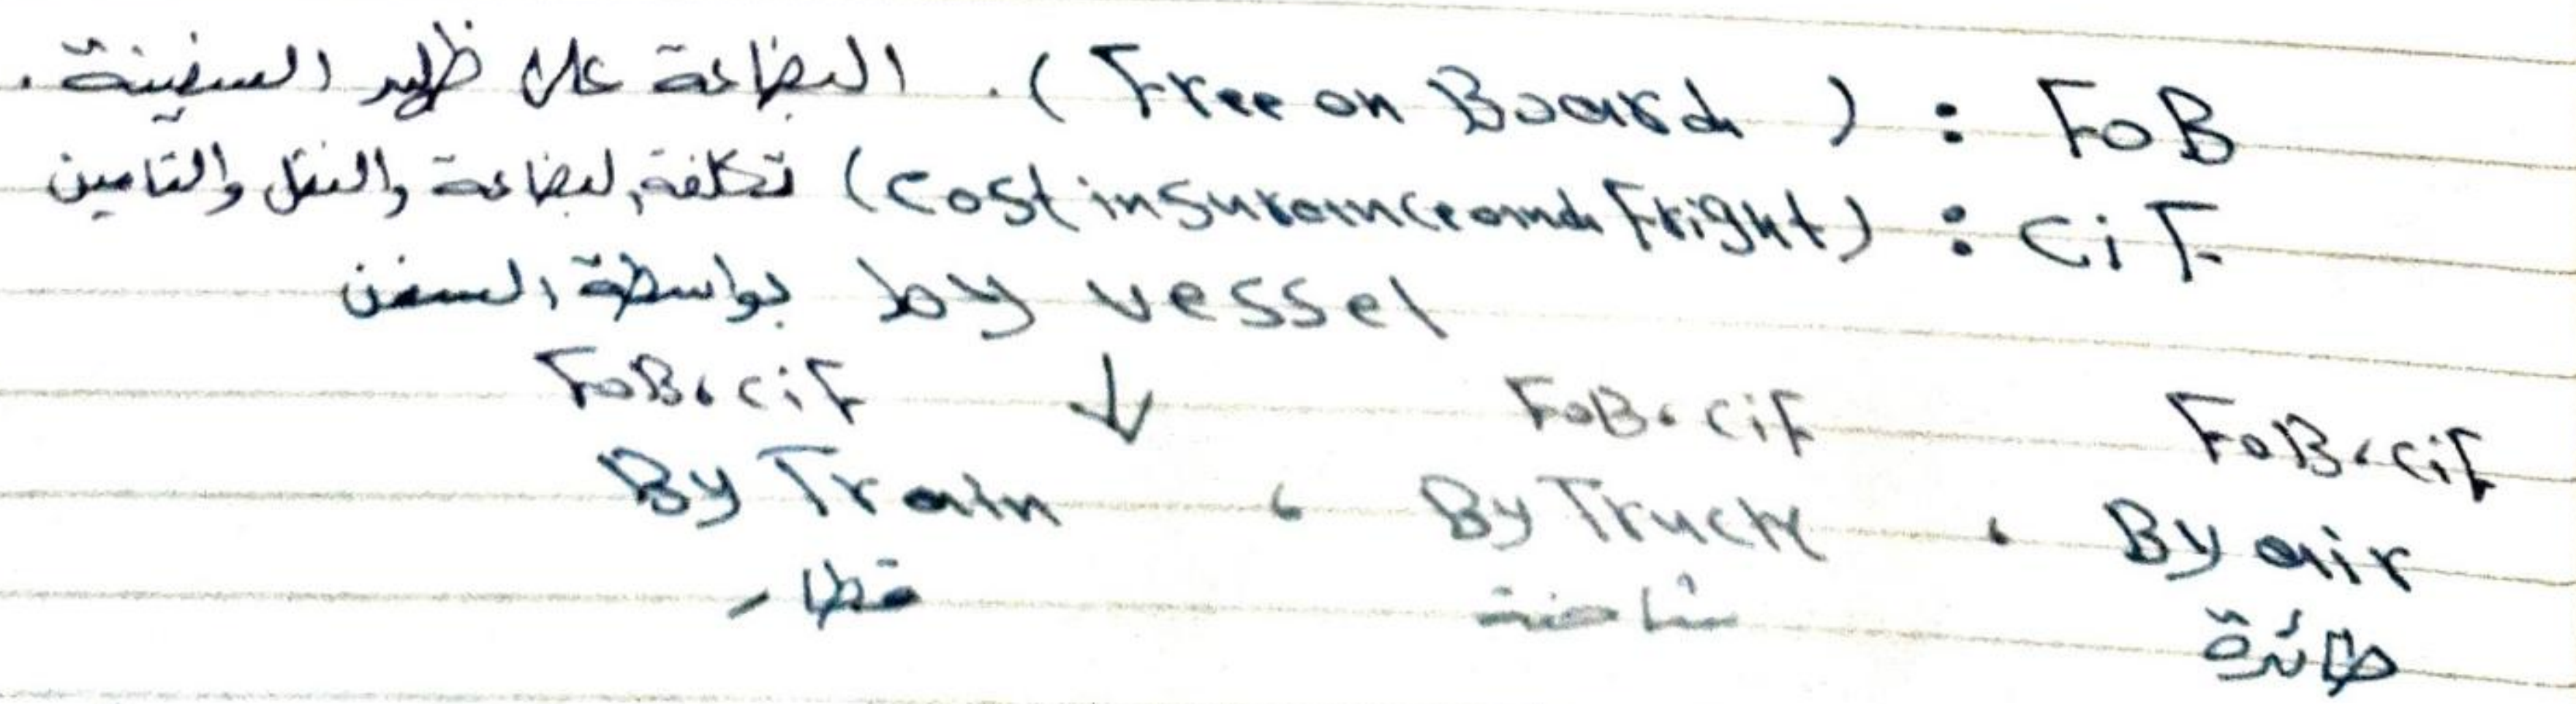 FoB : ( Free on Board ) . البضاعة على ظهر السفينة .
CiF : (Cost insurance and Fright) تكلفة البضاعة والنقل والتامين
by vessel بواسطة السفن
↓
FoB، CiF FoB، CiF FoB، CiF
By air ، By Truck ، By Train
طائرة شاحنة قطار